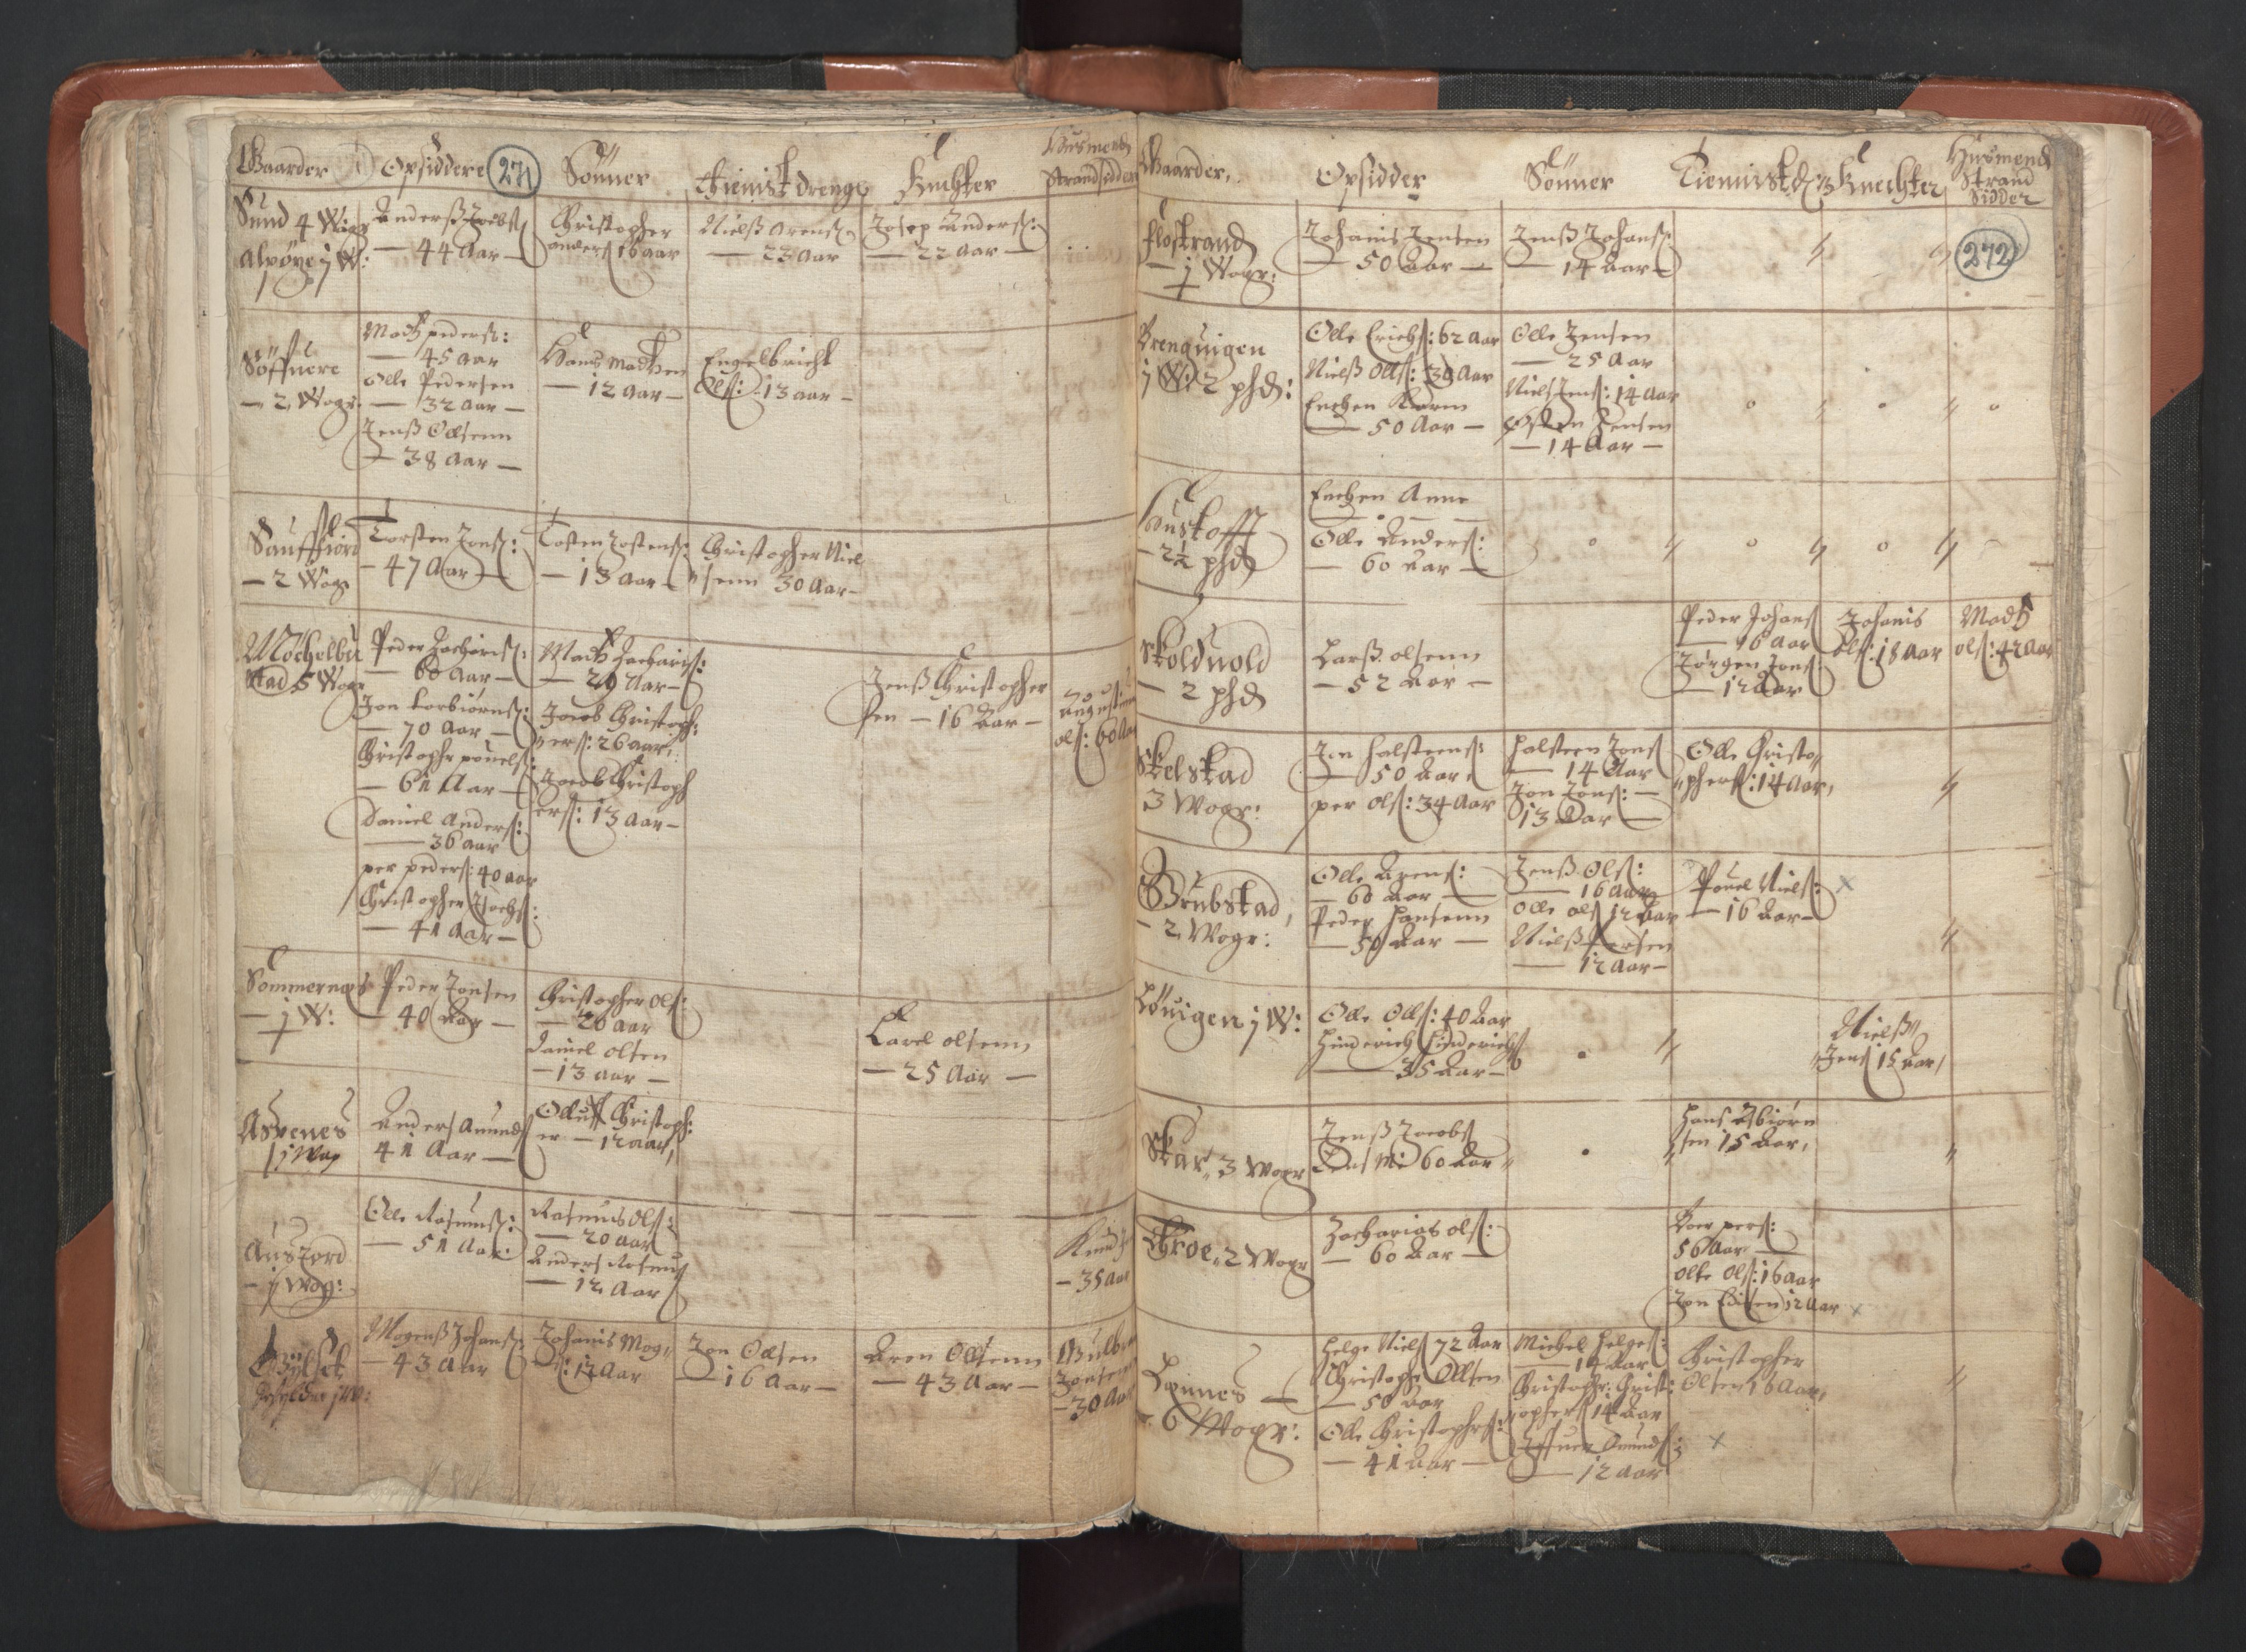 Gaarder
Opsiddere
271
Sönner
Tienist drenge
Knechter
Husmend
Strandsidder
Sund 4 Wogr
Alsøye j W:
Anderß Jacobs
— 44 Aar —
Christopher
anders 16 aar
Nielß Arens
— 23 Aar
Josep Anders:
— 22 Aar —
Söffuere
— 2 Wogr.
Madß peders:
— 45 Aar
Olle Pedersen
— 32 Aar —
Jenß Olsenn
— 38 Aar —
Hans Madsen
— 12 Aar —
Engelbricht
Ols: 13 aar —
Sauffiord
— 2 Wogr
Torsten Jons:
— 47 Aar —
Tosten Tostens:
— 13 Aar —
Christopher Niel
senn 30 Aar —
Möchelbu
stad 5 Wogr
Peder Zacharis:
— 60 Aar —
Jon torbiørns:
— 70 Aar —
Christopher pouels:
— 61 Aar —
Daniel Anders:
— 36 aar
per peders: 40 aar
Christopher
— 41 Aar —
Madß Zacharis:
— 29 Aar —
Jacob Christoph:
ers: 26 aar,
Jacob Christoph
ers: 13 Aar —
Jenß Christopher
sen — 16 Aar —
Augustinus
ols: 60 Aar
Sommernæs
— j W:
Peder Jonsen
— 40 Aar —
Christopher Ols:
— 26 aar
Daniel olsen
— 13 aar —
Carel olsenn
— 25 Aar —
Asvenes
1 j Wog
Anders Amunds
41 Aar —
Olluff Christoph:
er — 12 aar,
Ausiord
— j Wog:
Olle Rasmus:
— 51 Aar:
Rasmus Ols:
— 20 aar
Anders Rasmus
— 12 Aar
Knud
— 35 Aar
Mogenß Johans:
— 43 Aar
Johanis Mog
s: 12 Aar
Jon Olsen
— 16 Aar —
Aren Olsenn
— 43 Aar —
Gulbr
Jonsen
— 30 Aar
Gaarder,
Opsidder
Sönner
Tiennistd:
Knechter
Husmend
Strand
Sidder
272
flostrand
— j Wogr:
Johanis Jensen
— 50 Aar —
Jenß Johans:
— 14 Aar —
Brenguigen
j W: 2 phd:
Olle Erichs: 62 Aar
Nielß Olls: 30 Aar
Enchen Karen
— 50 Aar —
Olle Jensen
— 25 Aar
Niels Jens: 14 Aar
Osten Jensen
— 14 Aar —
Hustofft
— 2½ phd
Enchen Anne
Olle Anders:
— 60 Aar —
Skolduold
— 2 phd
Larß olsenn
— 52 Aar —
Peder Johans
— 16 Aar
Jørgen Jons:
— 12 Aar
Johanis
ols: 18 Aar
Madß
ols: 42 Aar
Skelstad
3 Wogr:
Jon Halsteens:
— 50 Aar
per ols: 34 Aar
Halsteen Jons
— 14 Aar
Jon Jons: —
13 Aar —
Olle Christo
phers: 14 Aar,
Grubstad,
— 2 Wogr:
Olle Arens:
— 60 Aar —
Peder Hansenn
— 50 Aar —
Jenß Ols:
— 16 Aar
Olle ols 12 Aar
Nielß Persen
— 12 Aar —
Pouel Niels:
— 16 Aar —
Löuigen j W:
Olle Olls: 40 Aar
Hinderich Hinderichs
— 35 Aar —
Nielß
Jens 15 Aar
Skar, 3 Wogr
Jenß Jacobs
60 Aar
Hans Asbiørn
sen 15 Aar,
Groe, 2 Wogr
Zacharias ols:
— 60 Aar —
Aar pers:
56 Aar —
olle ols: 16 Aar
Jon 12 Aar
Lannes —
6 Wogr:
Helge Niels 72 Aar
Christopher Ollsen
— 50 Aar
Olle Christophers:
— 41 Aar —
Michel Helges:
— 14 Aar
Christopher Christ:
ophers 14 Aar
Amunds:
— 12 Aar
Christopher
Olsen 16 Aar,